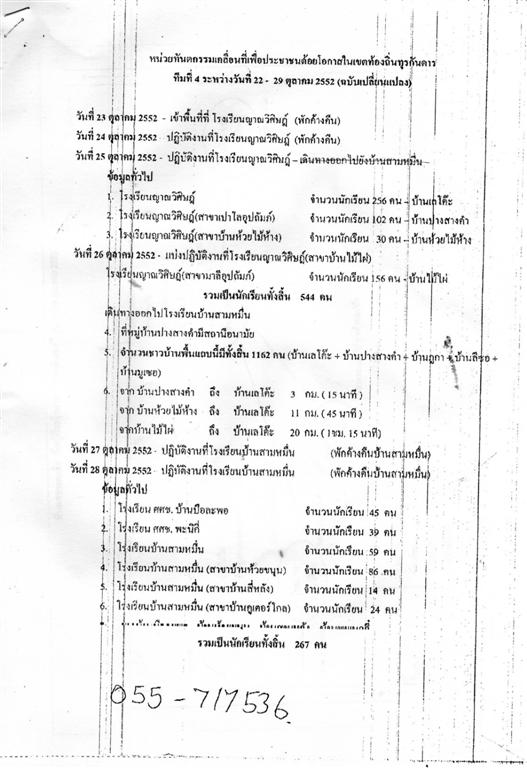 หน่วยทันตกรรมเคลื่อนที่เพื่อประชาชนด้อยโอกาสในเขตท้องถิ่นทุรกันดาร
ทีมที่ 4 ระหว่างวันที่ 22 - 29 ตุลาคม 2552 (ฉบับเปลี่ยนแปลง)
วันที่ 23 ตุลาคม 2552 - เข้าพื้นที่ที่ โรงเรียนญาณวิศิษฎ์ (พักค้างคืน)
วันที่ 24 ตุลาคม 2552 - ปฏิบัติงานที่โรงเรียนญาณวิศิษฎ์ (พักค้างคืน)
วันที่ 25 ตุลาคม 2552 - ปฏิบัติงานที่โรงเรียนญาณวิศิษฎ์ – เดินทางออกไปยังบ้านสามหมื่น
ข้อมูลทั่วไป
1. โรงเรียนญาณวิศิษฎ์ จำนวนนักเรียน 256 คน – บ้านเลโค๊ะ
2. โรงเรียนญาณวิศิษฎ์(สาขาเปาโลอุปถัมภ์) จำนวนนักเรียน 102 คน – บ้านปางสางคำ
3. โรงเรียนญาณวิศิษฎ์(สาขาบ้านห้วยไม้ห้าง) จำนวนนักเรียน 30 คน – บ้านห้วยไม้ห้าง
วันที่ 26 ตุลาคม 2552 - แบ่งปฏิบัติงานที่โรงเรียนญาณวิศิษฎ์(สาขาบ้านไม้ไผ่)
โรงเรียนญาณวิศิษฎ์(สาขามาลีอุปถัมภ์) จำนวนนักเรียน 156 คน - บ้านไม้ไผ่
รวมเป็นนักเรียนทั้งสิ้น 544 คน
เดินทางออกไปโรงเรียนบ้านสามหมื่น
4. ที่หมู่บ้านปางสางคำมีสถานีอนามัย
5. จำนวนชาวบ้านพื้นแถบนี้มีทั้งสิ้น 1162 คน (บ้านเลโค๊ะ + บ้านปางสางคำ + บ้านฎูกา + บ้านลีซอ +
บ้านมูเซอ)
6. จาก บ้านปางสางคำ ถึง บ้านเลโค๊ะ 3 กม. ( 15 นาที )
จาก บ้านห้วยไม้ห้าง ถึง บ้านเลโค๊ะ 11 กม. ( 45 นาที )
จากบ้านไม้ไผ่ ถึง บ้านเลโค๊ะ 20 กม. ( 1ชม. 15 นาที)
วันที่ 27 ตุลาคม 2552 - ปฏิบัติงานที่โรงเรียนบ้านสามหมื่น (พักค้างคืนบ้านสามหมื่น)
วันที่ 28 ตุลาคม 2552 - ปฏิบัติงานที่โรงเรียนบ้านสามหมื่น (พักค้างคืนบ้านสามหมื่น)
ข้อมูลทั่วไป
1. โรงเรียน ศศช. บ้านป๊อละพอ จำนวนนักเรียน 45 คน
2. โรงเรียน ศศช. พะนิกี่ จำนวนนักเรียน 39 คน
3. โรงเรียนบ้านสามหมื่น จำนวนนักเรียน 59 คน
4. โรงเรียนบ้านสามหมื่น (สาขาบ้านห้วยขนุน) จำนวนนักเรียน 86 คน
5. โรงเรียนบ้านสามหมื่น (สาขาบ้านสี่หลัง) จำนวนนักเรียน 14 คน
6. โรงเรียนบ้านสามหมื่น (สาขาบ้านกูเตอร์โกล) จำนวนนักเรียน 24 คน
รวมเป็นนักเรียนทั้งสิ้น 267 คน
055-717536